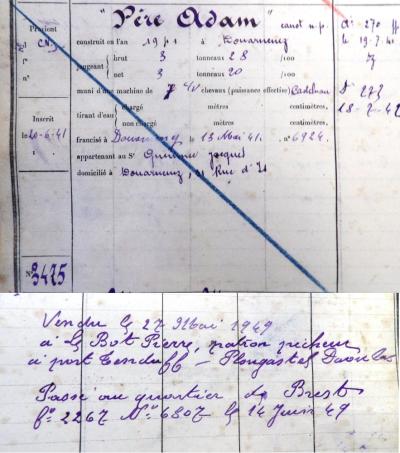 "Père Adam" canot n.p.
Provient
d CN
f°
n°
construit en l'an 1941 à Douarnenez
jaugeant
brut 3 tonneaux 28 /100
net 3 tonneaux 20 /100
muni d'une machine de chevaux (puissance effective)
tirant d'eau
chargé mètres centimètres,
non chargé mètres centimètres.
Inscrit
le 20-6-41
francisé à Douarnenez le 13 Mai 41. n° 6924.
appartenant au Sr Jacques
domicilié à Douarnenez, Rue d'Is
d° 270
le 19-7-41
d° 272
18-2-42
N° 3425
Vendu le 27 Mai 1949
à Le Bot Pierre, patron pêcheur
à port Tenduff – Plougastel Daoulas
Passé au quartier de Brest
f° 2267 N° 6807 le 14 Juin 49